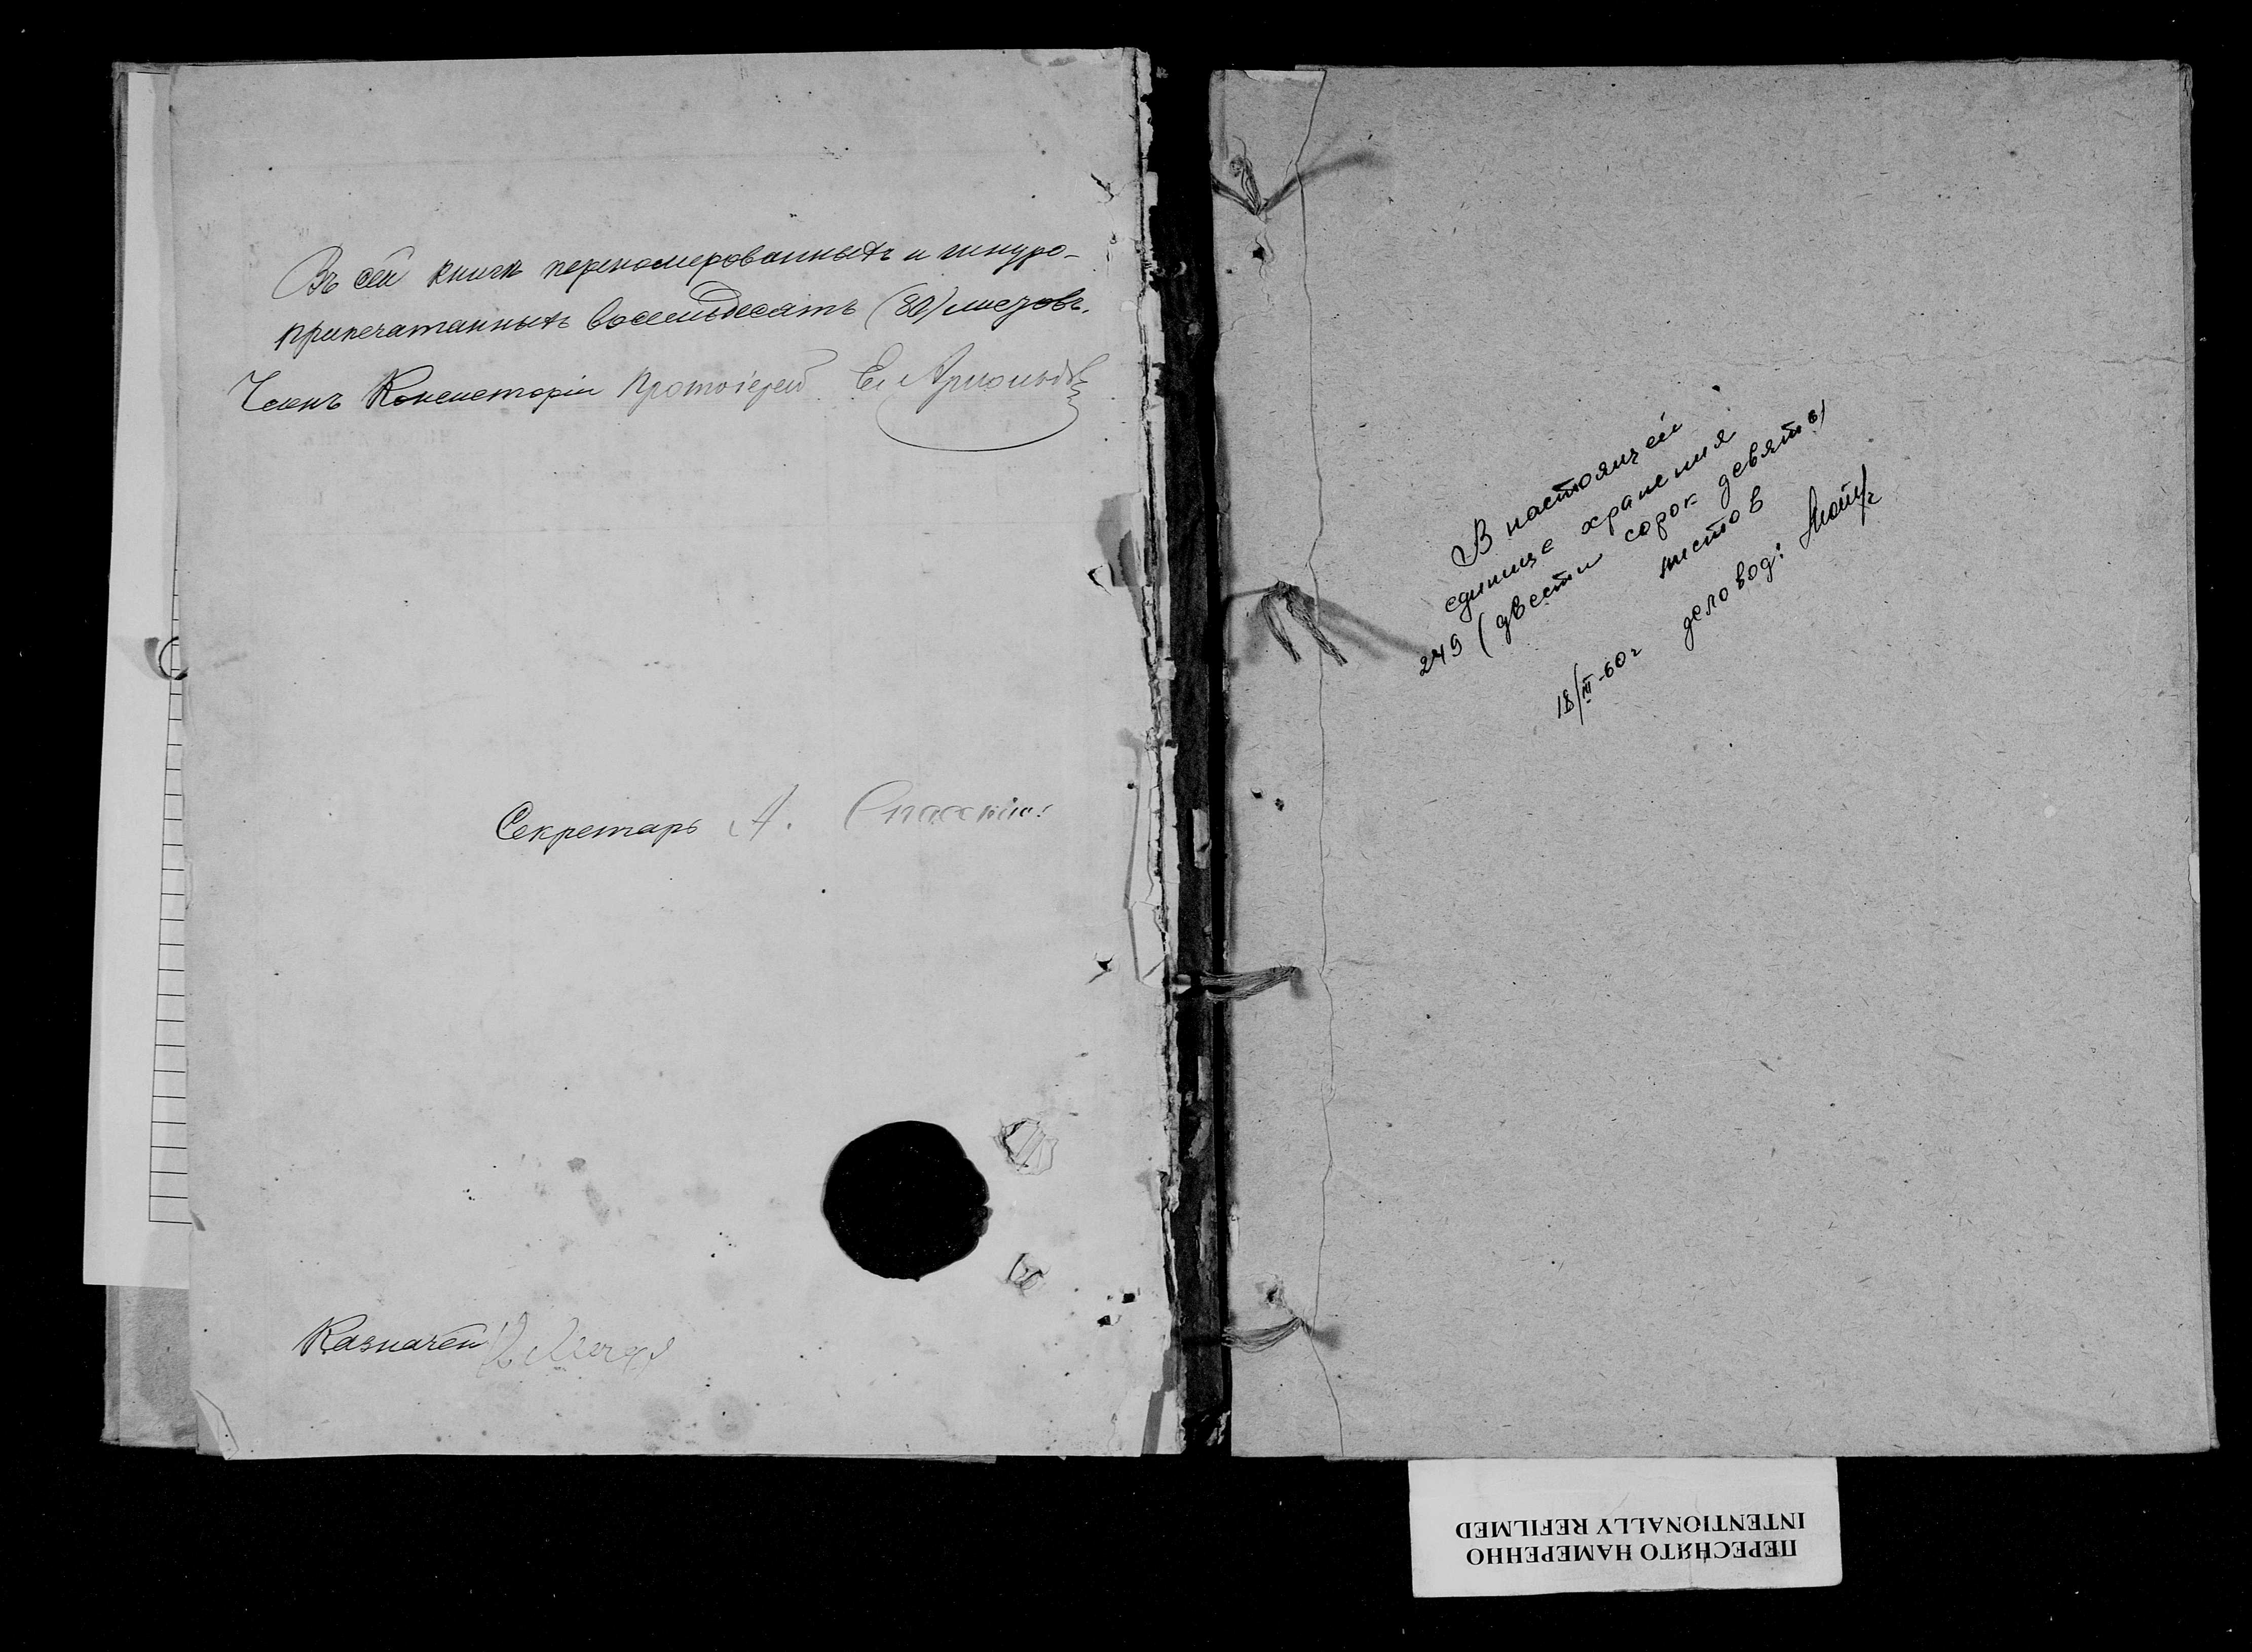 Въ сей книгѣ перенομерованныхъ и шнуро-
припечатанныхъ восемьдесятъ (80) листовъ.
Членъ Консисторіи Протоіерей Ел
Секретарь А. Спасскій
Казначей
В настоящей
единице хранения
249 (двести сорок девять)
листов
18/III-60 г деловод:
ПЕРЕСНЯТО НАМЕРЕННО
INTENTIONALLY REFILMED